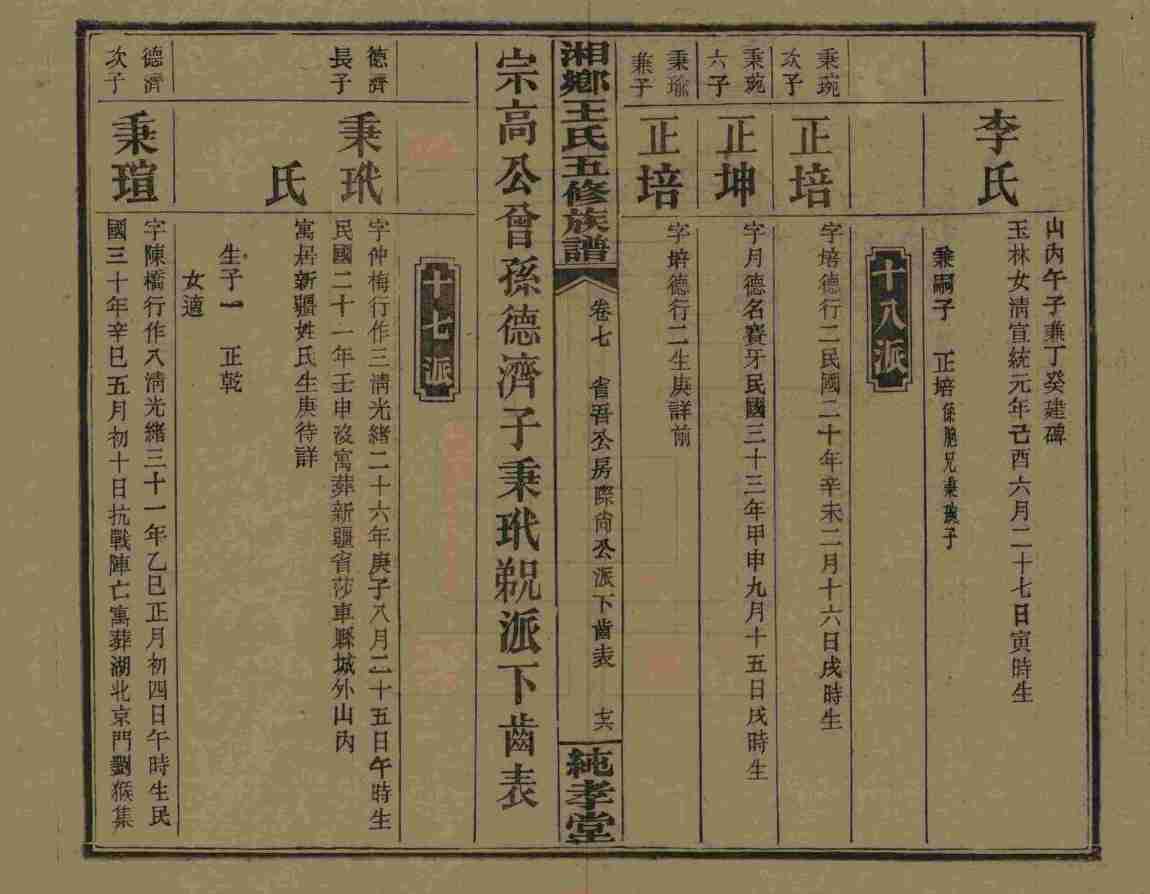 山内午子兼丁癸建碑
李氏
玉林女清宣統元年己酉六月二十七日寅時生
兼嗣子 正培係胞兄秉琬子
十八派
秉琬
次子
正培
字培德行二民國二十年辛未二月十六日戌時生
秉琬
六子
正坤
字月德名賽牙民國三十三年甲申九月十五日戌時生
秉瑜
兼子
正培
字培德行二生庚詳前
湘鄉王氏五修族譜
卷七 省吾公房際尚公派下齒表
純孝堂
宗高公曾孫德濟子秉玳派下齒表
十七派
德濟
長子
秉玳
字仲梅行作三清光緒二十六年庚子八月二十五日午時生
民國二十一年壬申沒寓葬新疆省莎車縣城外山内
氏
寓居新疆姓氏生庚待詳
生子一 正乾
女適
德濟
次子
秉瑄
字陳橋行作八清光緒三十一年乙巳正月初四日午時生民
國三十年辛巳五月初十日抗戰陣亡寓葬湖北京門劉猴集